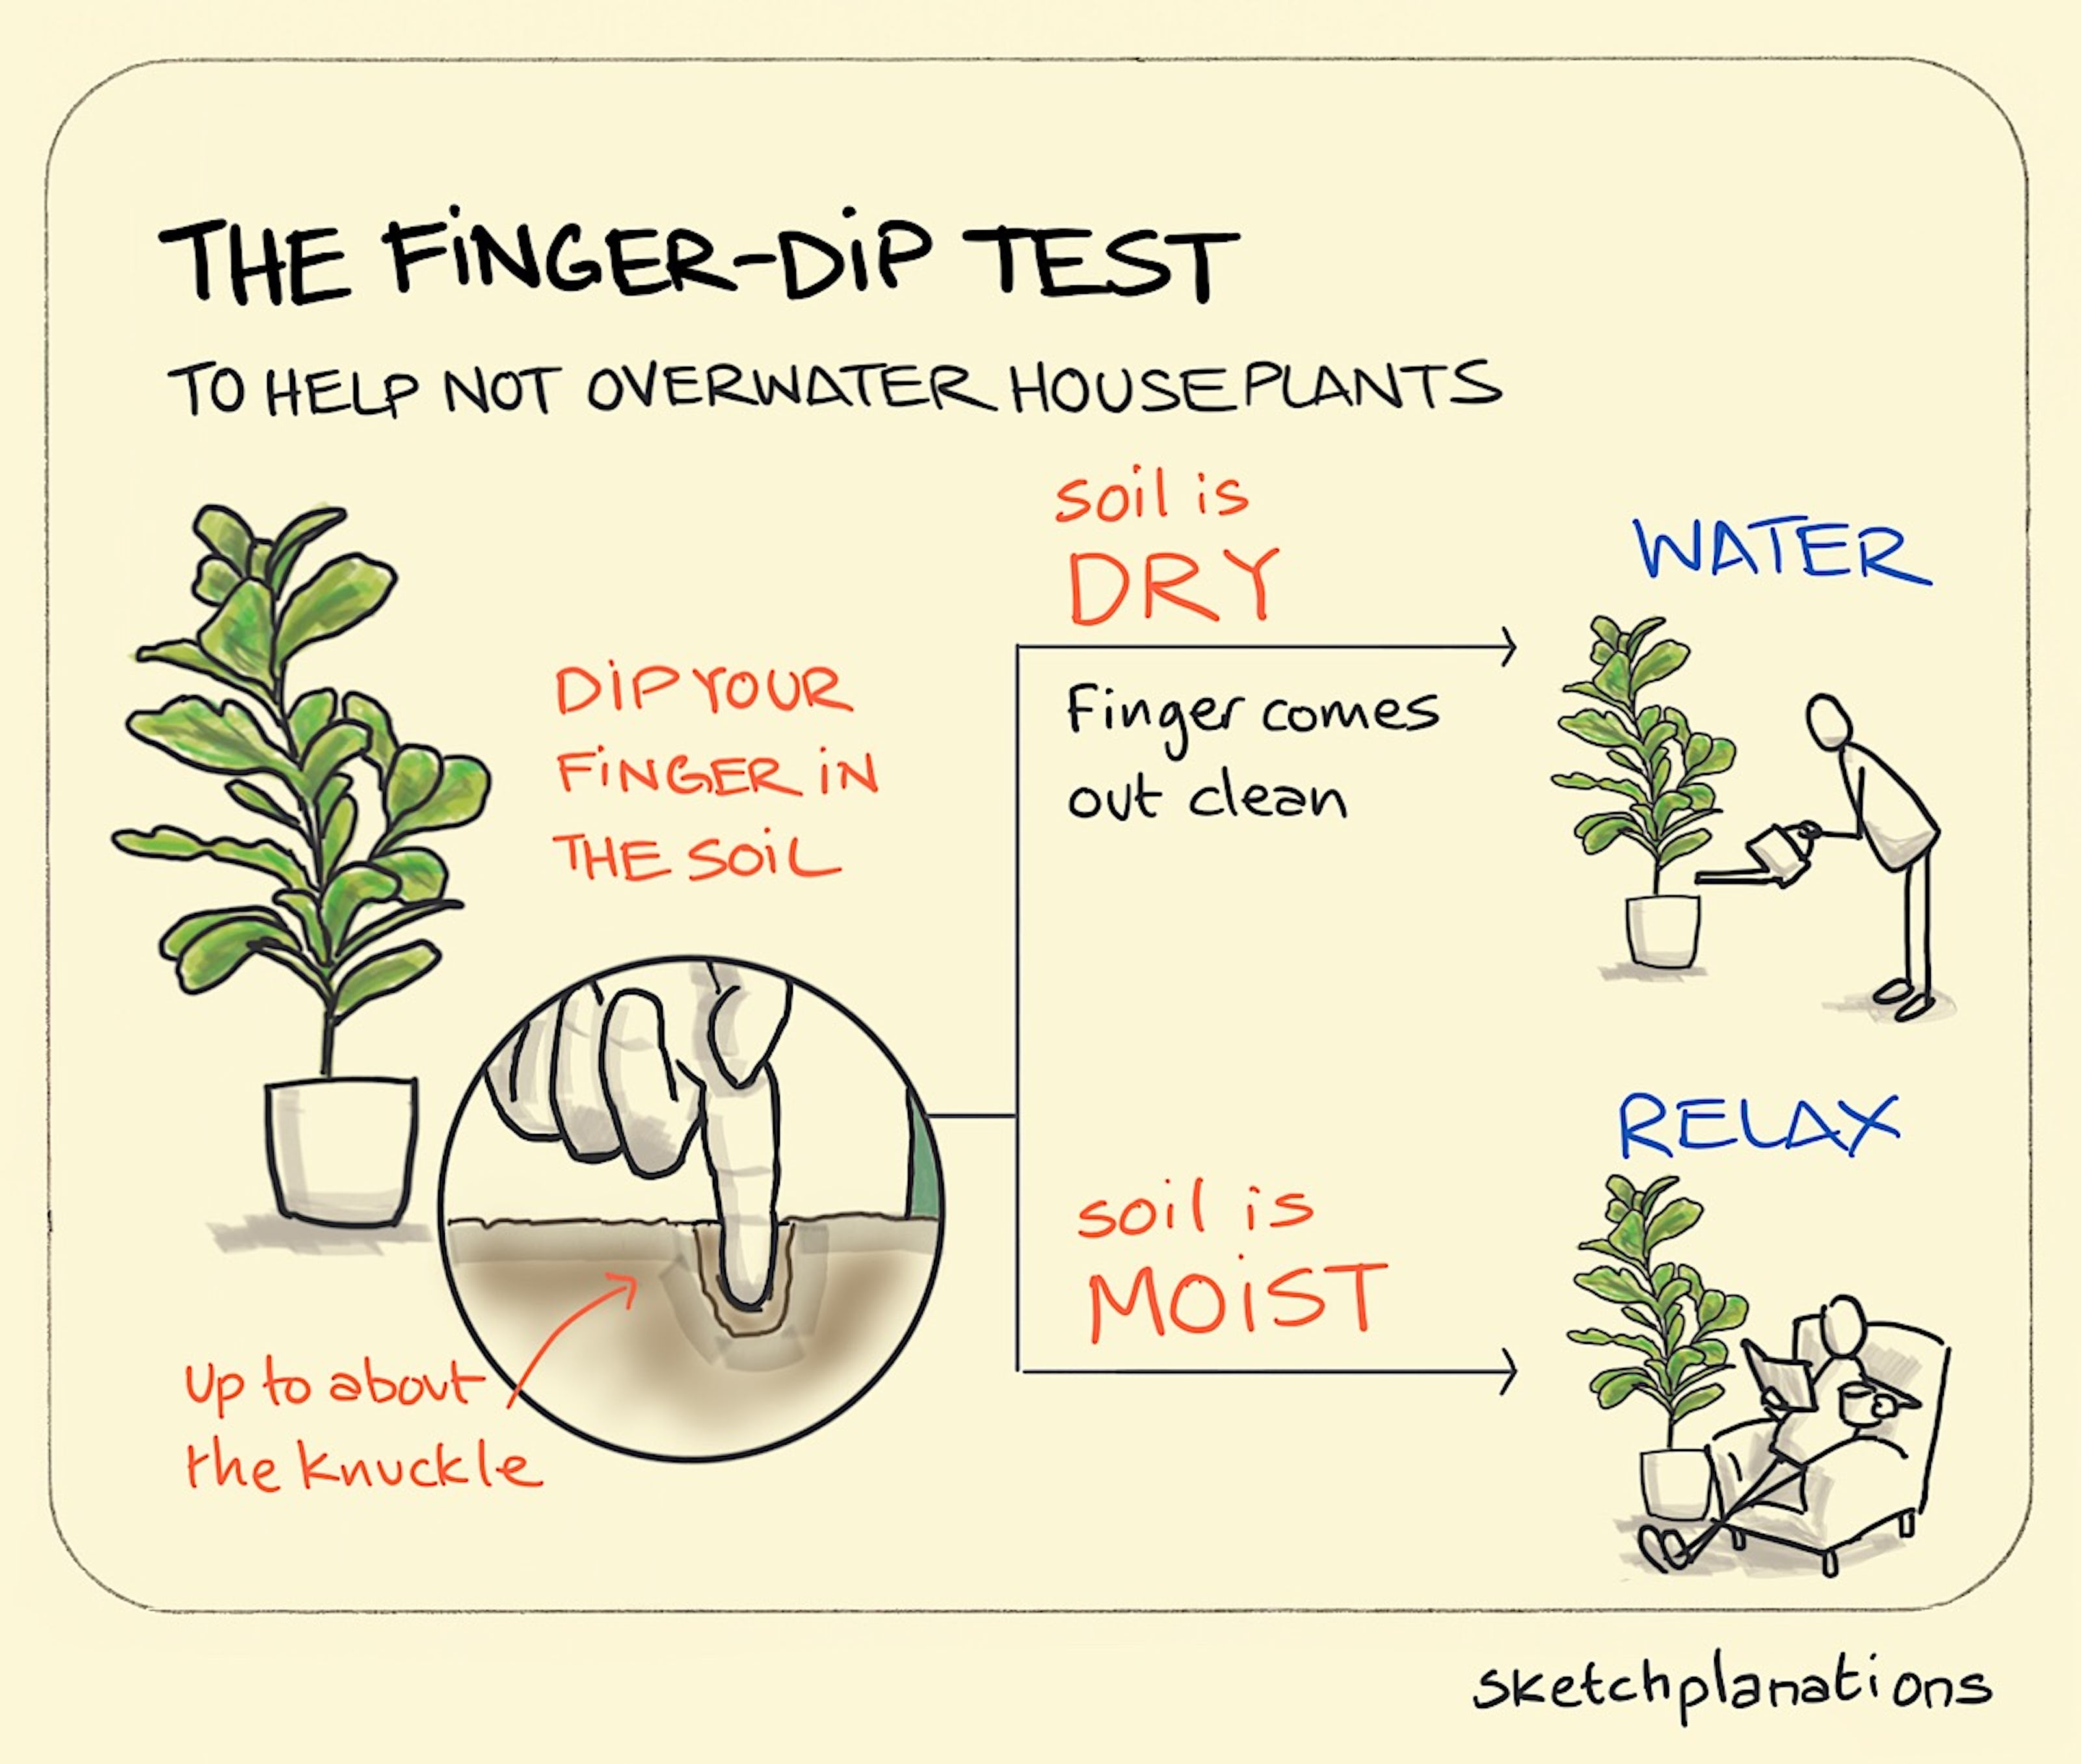 THE FINGER-DIP TEST
TO HELP NOT OVERWATER HOUSEPLANTS
DIP YOUR
FINGER IN
THE SOIL
Up to about
the knuckle
soil is
DRY
Finger comes
out clean
WATER
soil is
MOIST
RELAX
sketchplanations